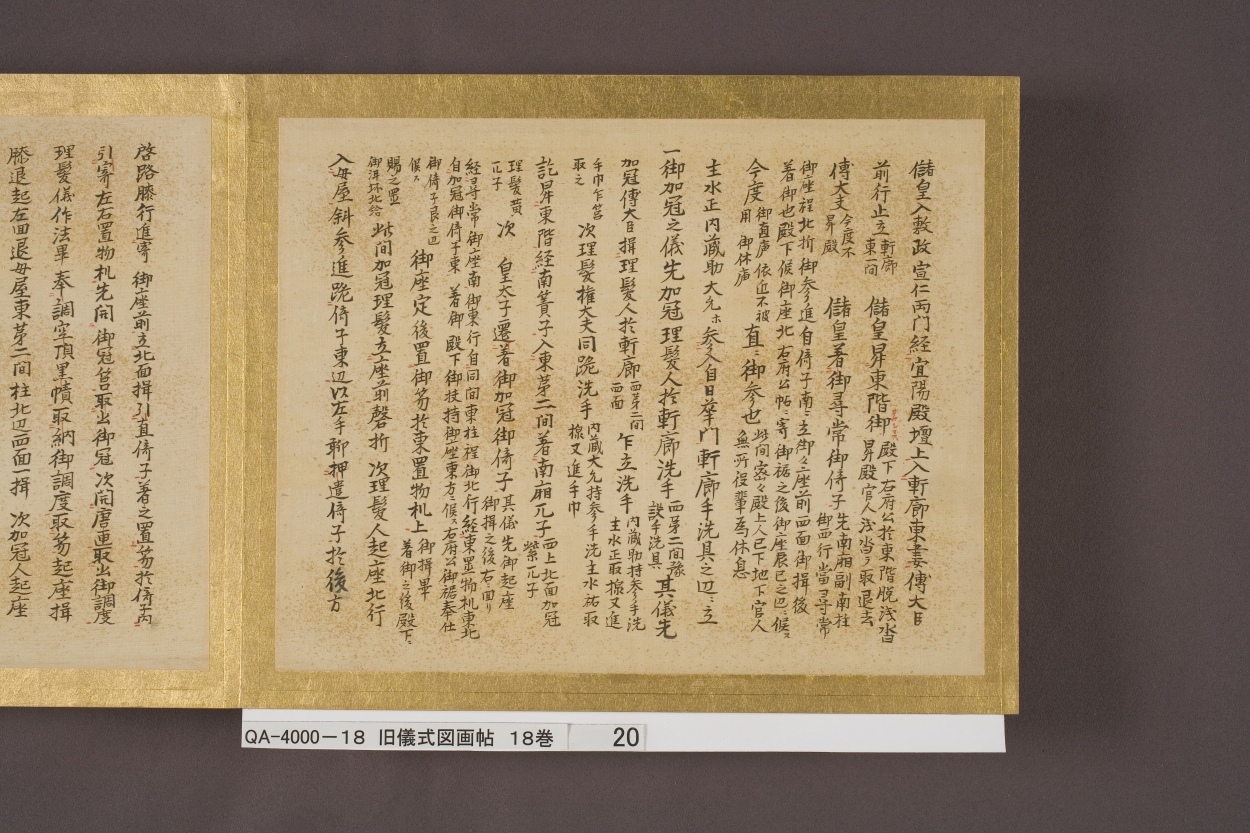 儲皇入敷政宣仁両门経宜陽殿壇上入軒廊東妻傅大臣
前行止立軒廊東一間 儲皇昇東階御 殿下右府公於東階脱浅沓昇殿官人浅沓ヲ取退去
傅大夫今度不昇殿 儲皇着御尋常御倚子 先南廂副南柱御四行當尋常
御座程北折御参進自倚子南ニ立御々座前西面御揖後
着御也殿下候御座北右府公帖ニ寄御裾之後御座辰巳之辺ニ候ス
今度御直廬依近不被用御休廬 直ニ御参也 此間密々殿上人已下地下官人無所役輩為休息
主水正内蔵助大允ホ参入自日華門軒廊手洗具之辺ニ立
一御加冠之儀先加冠理髪人於軒廊洗手 西第二間豫設手洗具 其儀先
加冠傅大臣揖理髪人於軒廊西第二間西面 乍立洗手 内蔵助持参手洗主水正取楾又進
手巾乍筥取之 次理髪権大夫同跪洗手 内蔵大允持参手洗主水祐取楾又進手巾
訖昇東階経南簀子入東第二間着南廂兀子 西上北面加冠紫兀子
理髪黄兀子 次 皇太子遷着御加冠御倚子 其儀先御起座御揖之後右ニ回リ
経尋常御座南御東行自同間東柱程御北行経東置物机東北
自加冠御倚子東 着御殿下御扶持御座東方ニ候ス右府公御裾奉仕
御倚子艮之辺候ス 御座定後置御笏於東置物机上 御揖畢着御之後殿下ニ
賜之置御洱坏北給 此間加冠理髪立座前磬折次理髪人起座北行
入母屋斜参進跪倚子東辺以左手聊押遣倚子於後方
啓路膝行進寄 御座前立北面揖引直倚子着之置笏於倚子丙
引寄左右置物机先開 御冠筥取出御冠次開唐匣取出御調度
理髪儀作法畢 奉調空頂黒幘取納御調度取笏起座揖
膝退起左面退母屋東第二間柱北辺西面一揖 次加冠人起座
QA-4000-18 旧儀式図画帖 18巻 20